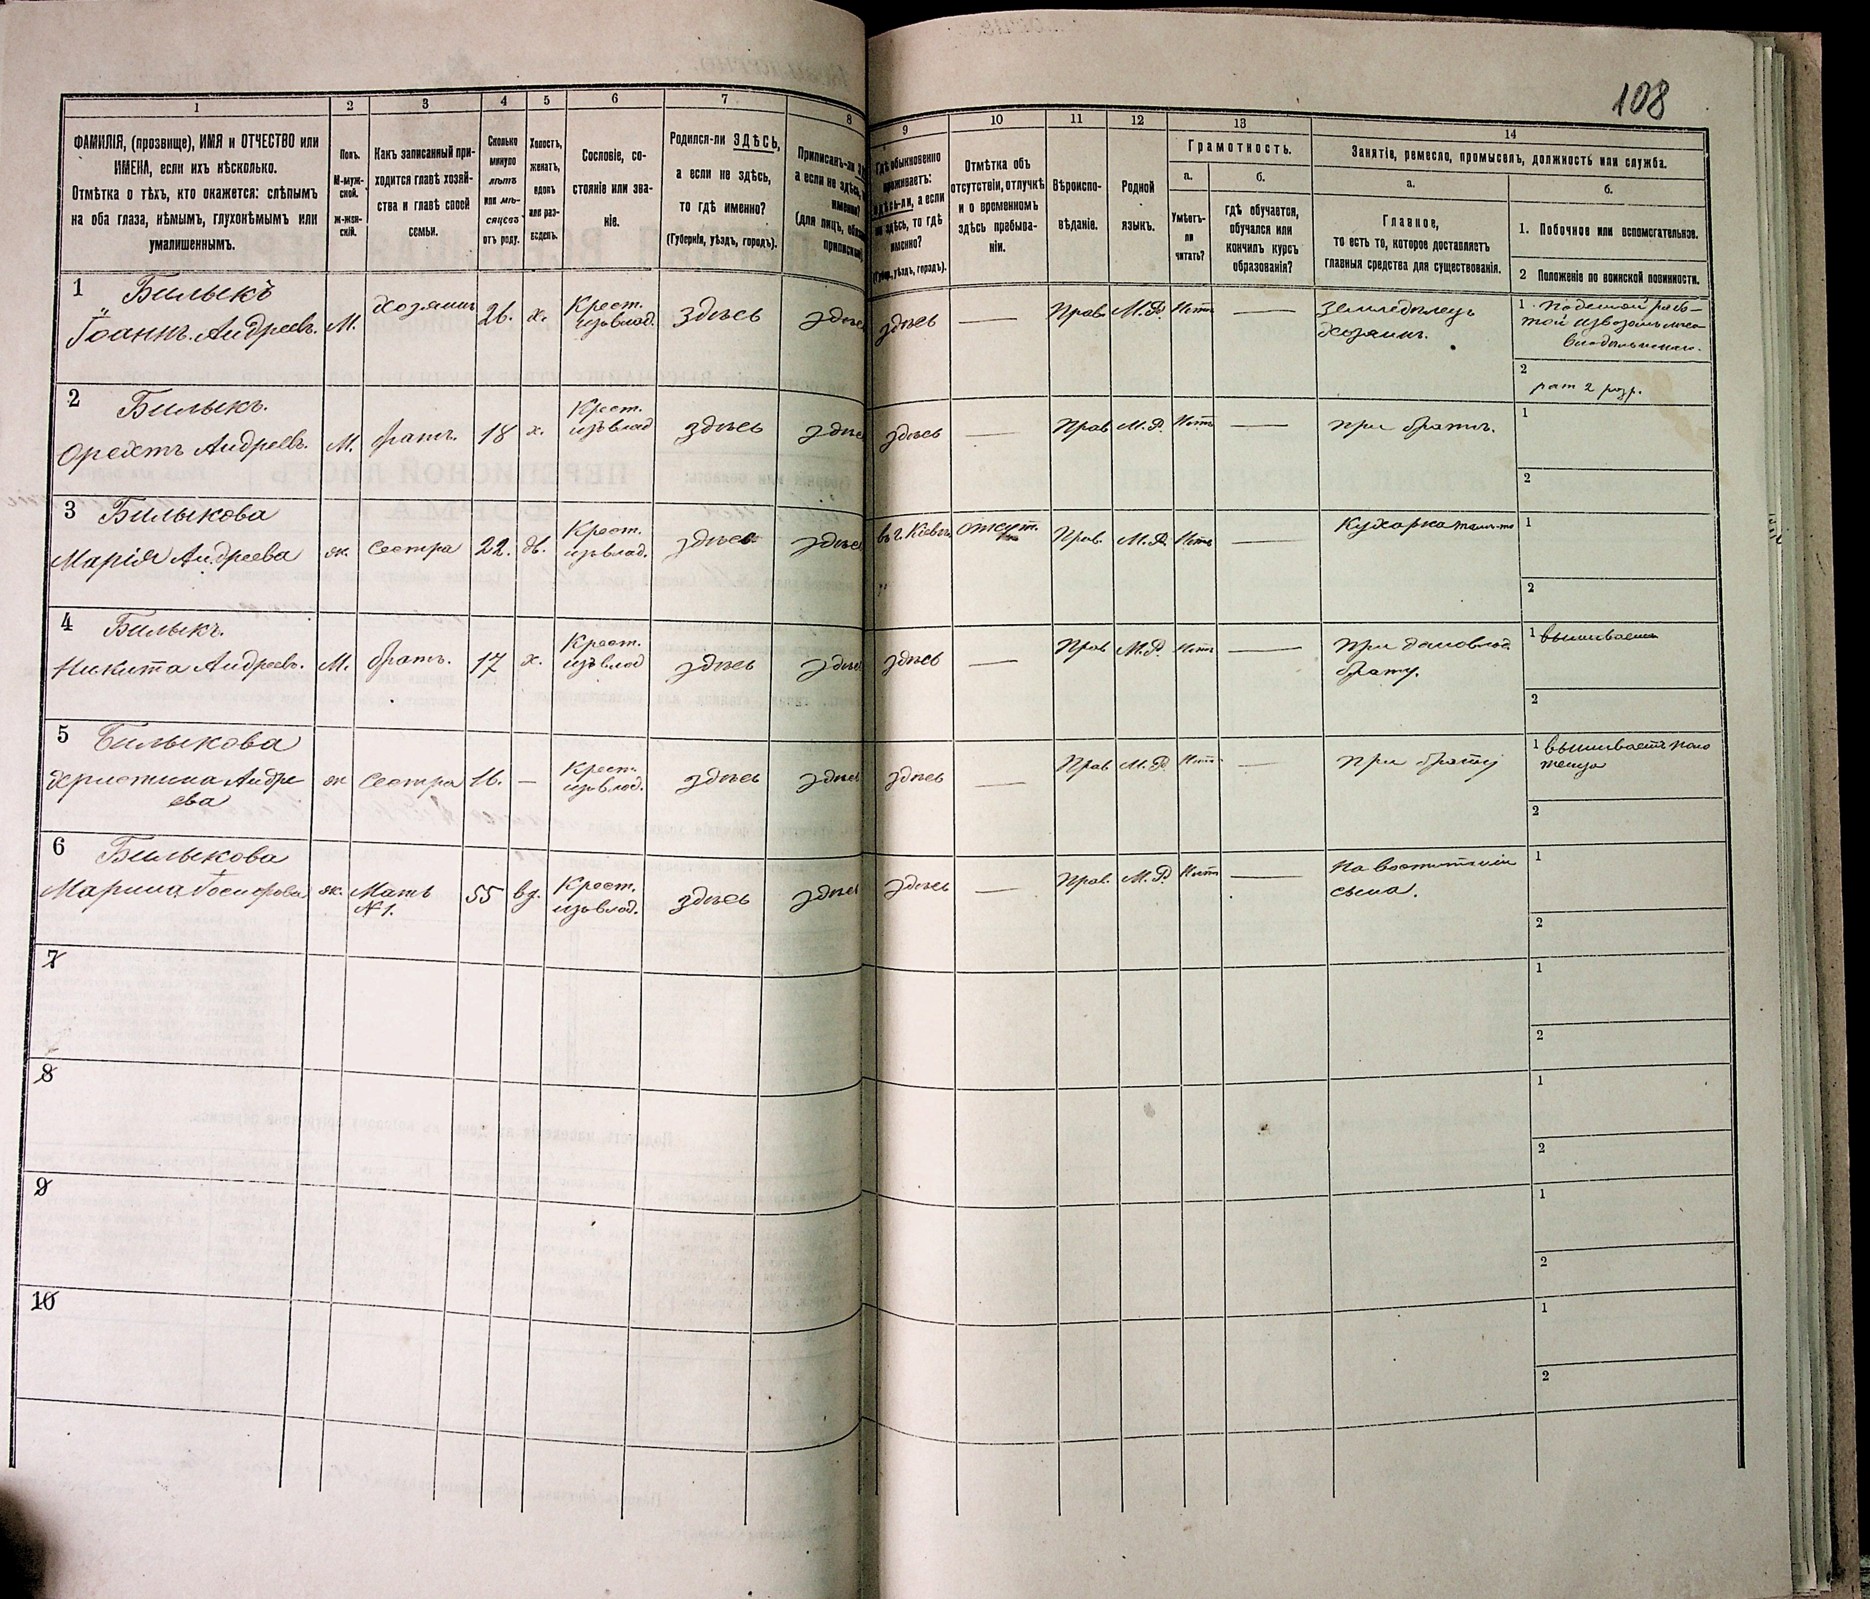 108
1
2
3
4
5
6
7
8
9
10
11
12
13
14
ФАМИЛІЯ, (прозвище), ИМЯ и ОТЧЕСТВО или
ИМЕНА, если ихъ нѣсколько.
Отмѣтка о тѣхъ, кто окажется: слѣпымъ
на оба глаза, нѣмымъ, глухонѣмымъ или
умалишеннымъ.
Полъ.
М-муж-
ской.
ж-жен-
скій.
Какъ записанный при-
ходится главѣ хозяй-
ства и главѣ своей
семьи.
Сколько
минуло
лѣтъ
или мѣ-
сяцевъ
отъ роду.
Холостъ,
женатъ,
вдовъ
или раз-
веденъ.
Сословіе, со-
стояніе или зва-
ніе.
Родился-ли ЗДѢСЬ,
а если не здѣсь,
то гдѣ именно?
(Губернія, уѣздъ, городъ).
Приписанъ-ли
а если не здѣсь,
именно?
(для лицъ,
Гдѣ обыкновенно
проживаетъ:
здѣсь-ли, а если
не здѣсь, то гдѣ
именно?
(Губер., уѣздъ, городъ).
Отмѣтка объ
отсутствіи, отлучкѣ
и о временномъ
здѣсь пребыва-
ніи.
Вѣроиспо-
вѣданіе.
Родной
языкъ.
Грамотность.
а.
б.
Умѣетъ-
ли
читать?
гдѣ обучается,
обучался или
кончилъ курсъ
образованія?
Занятіе, ремесло, промыселъ, должность или служба.
а.
б.
Главное,
то есть то, которое доставляетъ
главныя средства для существованія.
1. Побочное или вспомогательное.
2 Положеніе по воинской повинности.
1 Билыкъ
Іоаннъ Андреевъ. М. хозяинъ 26. х. Крест. изъ влад. здѣсь здѣсь
здѣсь — Прав. М.Р. Нѣтъ — Земледѣлецъ
хозяинъ.
1 Поденной рабо-
той извозомъ
2 рат 2 разр.
2 Билыкъ.
Орестъ Андреевъ. М. братъ. 18 х. Крест. изъ влад здѣсь здѣсь
здѣсь — Прав М.Р. Нѣтъ — при братѣ. 1
2
3 Билыкова
Марія Андреева ж. сестра 22. дѣ. Крест. изъ влад. здѣсь здѣсь
въ г. Кіевѣ отсут. Прав. М.Р. Нѣтъ — Кухарка 1
2
4 Билыкъ.
Никита Андреевъ. М. братъ. 17 х. Крест. изъ влад здѣсь здѣсь
здѣсь — Прав М.Р. Нѣтъ — При домовлад.
брату.
1 вышиваетъ
2
5 Билыкова
Христина Андре
ева ж сестра 16. — Крест. изъ влад. здѣсь здѣсь
здѣсь — Прав М.Р. Нѣтъ — при брату
1 вышиваетъ поло
тенца
2
6 Билыкова
Марина Іосифова ж. Мать
№1. 55 вд. Крест. изъ влад. здѣсь здѣсь
здѣсь — Прав. М.Р. Нѣтъ — На воспитаніи
сына.
1
2
7
1
2
8
1
2
9
1
2
10
1
2